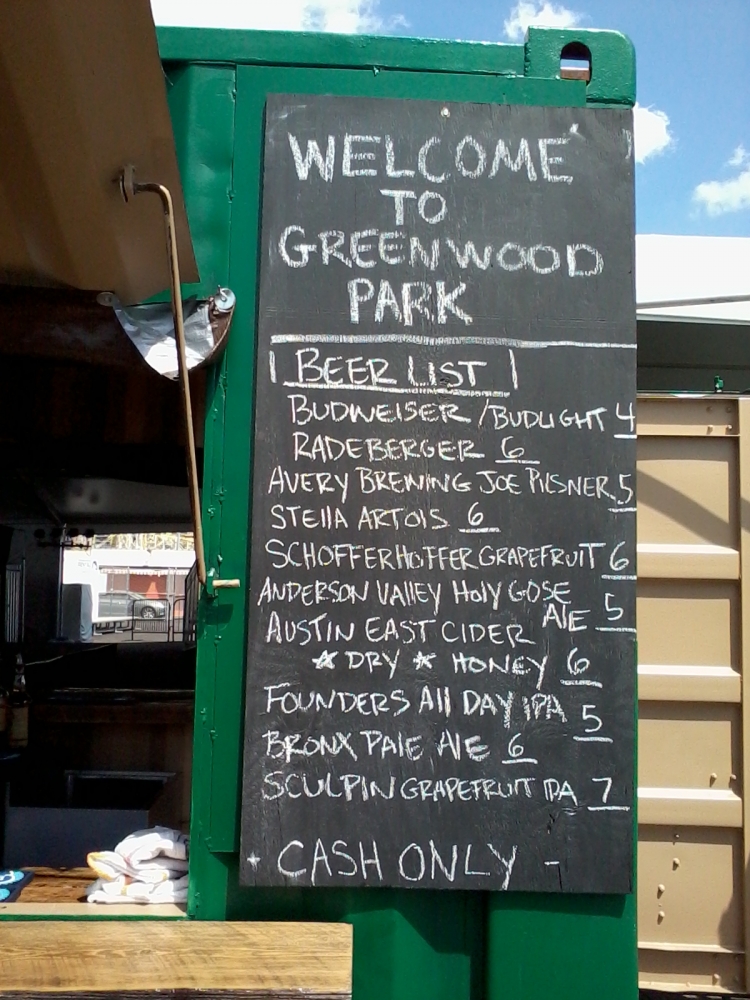 WELCOME
TO
GREENWOOD
PARK
BEER LIST
BUDWEISER / BUDLIGHT 4
RADEBERGER 6
AVERY BREWING JOE PILSNER 5
STEllA ARTOIS 6
SCHOFFERHOFFER GRAPEFRUIT 6
ANDERSON VAllEY HOlY GOSE
AlE 5
AUSTIN EAST CIDER
* DRY * HONEY 6
FOUNDERS All DAY IPA 5
BRONX PAlE AlE 6
SCULPIN GRAPEFRUIT IPA 7
- CASH ONLY -